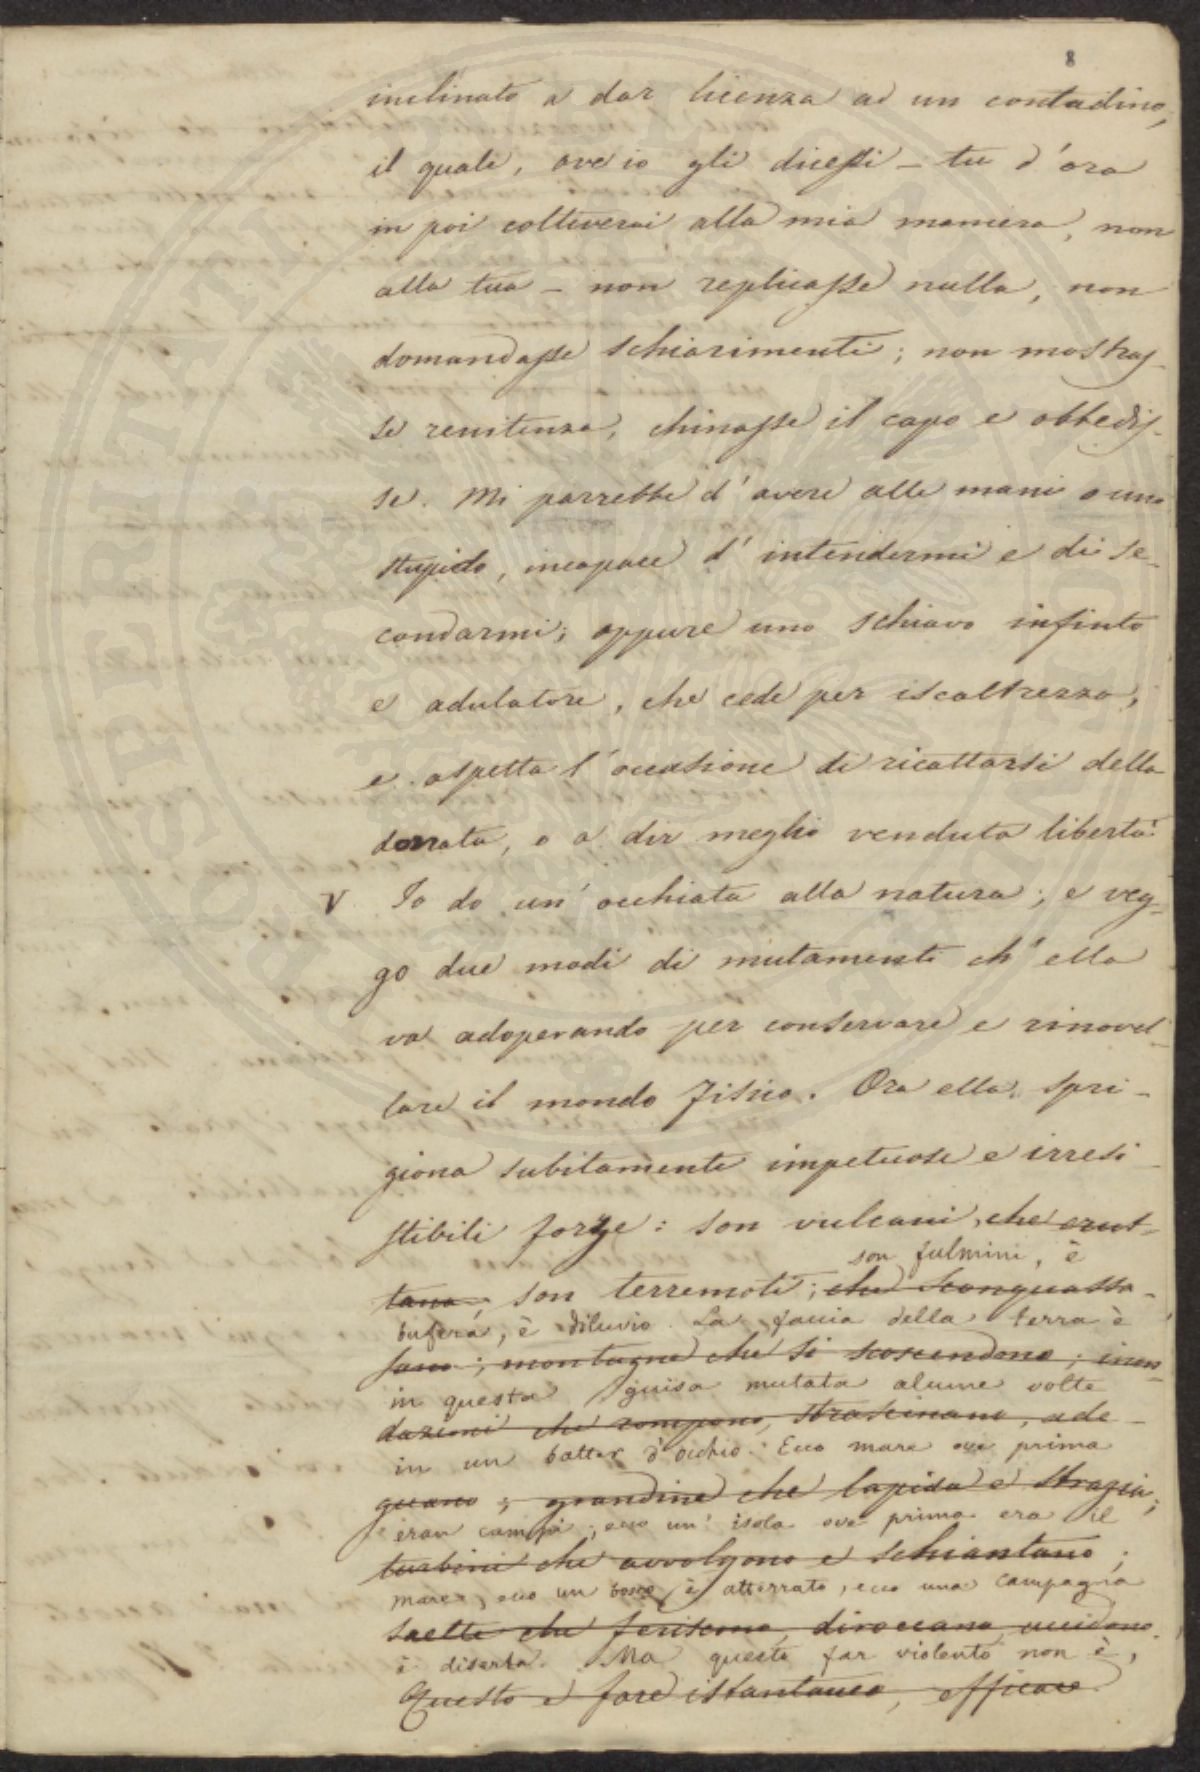 8
inclinato a dar licenza ad un contadino,
il quale, ove io gli dicessi – tu d'ora
in poi coltiverai alla mia maniera, non
alla tua – non replicasse nulla, non
domandasse schiarimenti; non mostras-
se renitenza, chinasse il capo e obbedis-
se. Mi parrebbe d'avere alle mani o uno
stupido, incapace d'intendermi e di se-
condarmi; oppure uno schiavo infinto
e adulatore, che cede per iscaltrezza,
e aspetta l'occasione di ricattarsi della
donata, o a dir meglio venduta libertà.
V Io do un'occhiata alla natura; e veg-
go due modi di mutamenti ch'ella
va adoperando per conservare e rinovel-
lare il mondo fisico. Ora ella spri-
giona subitamente impetuose e irresi-
stibili forze: son vulcani, che erut-
son fulmini, è
tano, son terremoti; che sconquassa-
bufera, è diluvio. La faccia della terra è
sano; montagne che si scoscendono; inon-
in questa guisa mutata alcune volte
dazioni che rompono, strascinano, ade-
in un batter d'occhio. Ecco mare ove prima
guano; grandine che lapida e strazia;
eran campi; ecco un'isola ove prima era il
turbini che avvolgono e schiantano;
mare, ecco un bosco è atterrato, ecco una campagna
saette che feriscono, diroccano, uccidono.
è diserta. Ma questo far violento non è,
Questo è fare istantaneo, efficace
PROSPERITATI PUBLICAE AUGENDAE